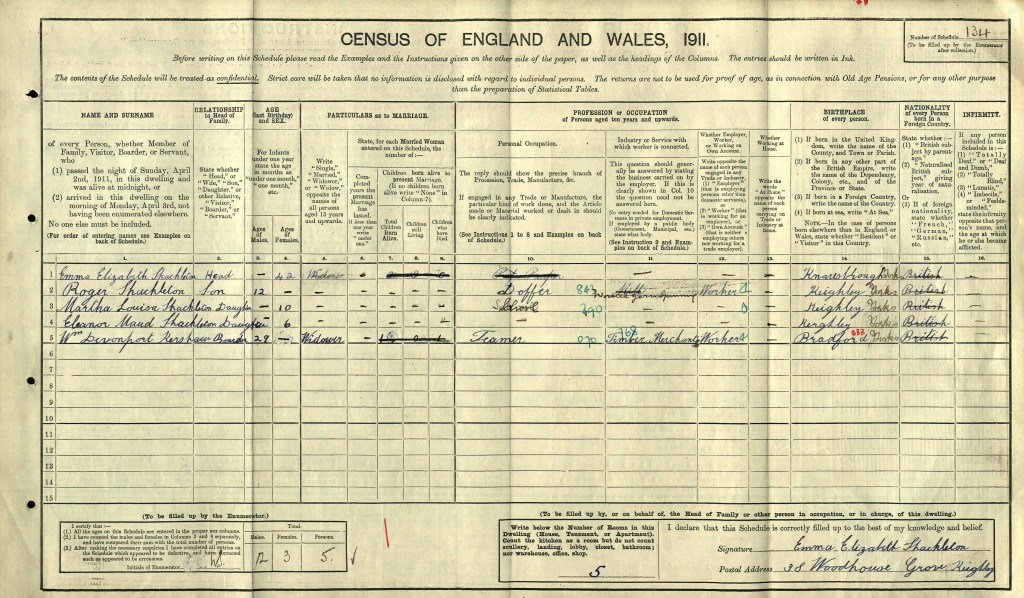 CENSUS OF ENGLAND AND WALES, 1911.
Number of Schedule 134
(To be filled up by the Enumerator after collection.)
Before writing on this Schedule please read the Examples and the Instructions given on the other side of the paper, as well as the headings of the Columns. The entries should be written in Ink.
The contents of the Schedule will be treated as confidential. Strict care will be taken that no information is disclosed with regard to individual persons. The returns are not to be used for proof of age, as in connection with Old Age Pensions, or for any other purpose
than the preparation of Statistical Tables.
NAME AND SURNAME
RELATIONSHIP to Head of Family.
AGE (last Birthday) and SEX.
PARTICULARS as to MARRIAGE.
PROFESSION or OCCUPATION
of Persons aged ten years and upwards.
BIRTHPLACE
of every person.
NATIONALITY of every Person born in a Foreign Country.
INFIRMITY.
of every Person, whether Member of Family, Visitor, Boarder, or Servant, who
(1) passed the night of Sunday, April 2nd, 1911, in this dwelling and was alive at midnight, or
(2) arrived in this dwelling on the morning of Monday, April 3rd, not having been enumerated elsewhere.
No one else must be included.
(For order of entering names see Examples on back of Schedule.)
State whether "Head," or "Wife," "Son," "Daughter," or other Relative, "Visitor," "Boarder," or "Servant."
For Infants under one year state the age in months as "under one month," "one month," etc.
Ages of Males.
Ages of Females.
Write "Single," "Married," "Widower," or "Widow," opposite the names of all persons aged 15 years and upwards.
State, for each Married Woman entered on this Schedule, the number of :—
Completed years the present Marriage has lasted. If less than one year write "under one."
Children born alive to present Marriage. (If no children born alive write "None" in Column 7).
Total Children Born Alive.
Children still Living.
Children who have Died.
Personal Occupation.
The reply should show the precise branch of Profession, Trade, Manufacture, &c.
If engaged in any Trade or Manufacture, the particular kind of work done, and the Article made or Material worked or dealt in should be clearly indicated.
(See Instructions 1 to 8 and Examples on back of Schedule.)
Industry or Service with which worker is connected.
This question should generally be answered by stating the business carried on by the employer. If this is clearly shown in Col. 10 the question need not be answered here.
No entry needed for Domestic Servants in private employment. If employed by a public body (Government, Municipal, etc.) state what body.
(See Instruction 9 and Examples on back of Schedule.)
Whether Employer, Worker, or Working on Own Account.
Write opposite the name of each person engaged in any Trade or Industry, (1) "Employer" (that is employing persons other than domestic servants), or (2) "Worker" (that is working for an employer), or (3) "Own Account" (that is neither employing others nor working for a trade employer).
Whether Working at Home.
Write the words "At Home" opposite the name of each person carrying on Trade or Industry at home.
(1) If born in the United Kingdom, write the name of the County, and Town or Parish.
(2) If born in any other part of the British Empire, write the name of the Dependency, Colony, etc., and of the Province or State.
(3) If born in a Foreign Country, write the name of the Country.
(4) If born at sea, write "At Sea."
NOTE.—In the case of persons born elsewhere than in England or Wales, state whether "Resident" or "Visitor" in this Country.
State whether :—
(1) "British subject by parentage."
(2) "Naturalised British subject," giving year of naturalisation.
Or
(3) If of foreign nationality, state whether "French," "German," "Russian," etc.
If any person included in this Schedule is :—
(1) "Totally Deaf," or "Deaf and Dumb,"
(2) "Totally Blind,"
(3) "Lunatic,"
(4) "Imbecile," or "Feeble-minded,"
state the infirmity opposite that person's name, and the age at which he or she became afflicted.
1. 2. 3. 4. 5. 6. 7. 8. 9. 10. 11. 12. 13. 14. 15. 16.
1 Emma Elizabeth Shackleton Head — 42 Widow Knaresborough Yorks British
2 Roger Shackleton Son 12 — Doffer Worsted Yarn Spinning Worker Keighley Yorks British
3 Martha Louise Shackleton Daughter — 10 School 390 Keighley Yorks British
4 Eleanor Maud Shackleton Daughter — 6 Keighley Yorks British
5 Wm Devonport Kershaw Boarder 29 — Widower Teamer 070 Timber Merchants Worker Bradford Yorks British
6
7
8
9
10
11
12
13
14
15
(To be filled up by the Enumerator.)
I certify that :—
(1.) All the ages on this Schedule are entered in the proper sex columns.
(2.) I have counted the males and females in Columns 3 and 4 separately, and have compared their sum with the total number of persons.
(3.) After making the necessary enquiries I have completed all entries on the Schedule which appeared to be defective, and have corrected such as appeared to be erroneous.
Initials of Enumerator
Total.
Males. Females. Persons.
2 3 5
(To be filled up by, or on behalf of, the Head of Family or other person in occupation, or in charge, of this dwelling.)
Write below the Number of Rooms in this Dwelling (House, Tenement, or Apartment). Count the kitchen as a room but do not count scullery, landing, lobby, closet, bathroom; nor warehouse, office, shop.
5
I declare that this Schedule is correctly filled up to the best of my knowledge and belief.
Signature Emma Elizabeth Shackleton
Postal Address 38 Woodhouse Grove Keighley